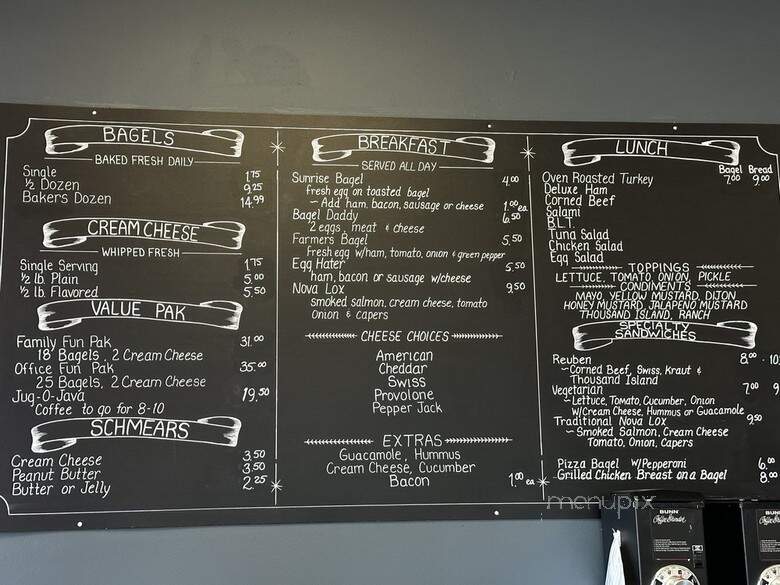 BAGELS
BAKED FRESH DAILY
Single 1.75
½ Dozen 9.25
Bakers Dozen 14.99
CREAM CHEESE
WHIPPED FRESH
Single Serving 1.75
½ lb. Plain 5.00
½ lb. Flavored 5.50
VALUE PAK
Family Fun Pak 31.00
18 Bagels, 2 Cream Cheese
Office Fun Pak 35.00
25 Bagels, 2 Cream Cheese
Jug-O-Java 19.50
Coffee to go for 8-10
SCHMEARS
Cream Cheese 3.50
Peanut Butter 3.50
Butter or Jelly 2.25
BREAKFAST
SERVED ALL DAY
Sunrise Bagel 4.00
Fresh egg on toasted bagel
~ Add ham, bacon, sausage or cheese 1.00 ea
Bagel Daddy 6.50
2 eggs, meat & cheese
Farmers Bagel 5.50
Fresh egg w/ham, tomato, onion & green pepper
Egg Hater 5.50
ham, bacon or sausage w/cheese
Nova Lox 9.50
smoked salmon, cream cheese, tomato
Onion & capers
CHEESE CHOICES
American
Cheddar
Swiss
Provolone
Pepper Jack
EXTRAS
Guacamole, Hummus
Cream Cheese, Cucumber
Bacon 1.00 ea
LUNCH
Bagel Bread
Oven Roasted Turkey 7.00 9.00
Deluxe Ham
Corned Beef
Salami
B.L.T.
Tuna Salad
Chicken Salad
Egg Salad
TOPPINGS
LETTUCE, TOMATO, ONION, PICKLE
CONDIMENTS
MAYO, YELLOW MUSTARD, DIJON
HONEY MUSTARD, JALAPENO MUSTARD
THOUSAND ISLAND, RANCH
SPECIALTY
SANDWICHES
Reuben 8.00 · 10
~Corned Beef, Swiss, Kraut &
Thousand Island
Vegetarian 7.00 9
~Lettuce, Tomato, Cucumber, Onion
W/Cream Cheese, Hummus or Guacamole
Traditional Nova Lox 9.50
~ Smoked Salmon, Cream Cheese
Tomato, Onion, Capers
Pizza Bagel W/Pepperoni 6.00
Grilled Chicken Breast on a Bagel 8.00
menupix
BUNN
BUNN